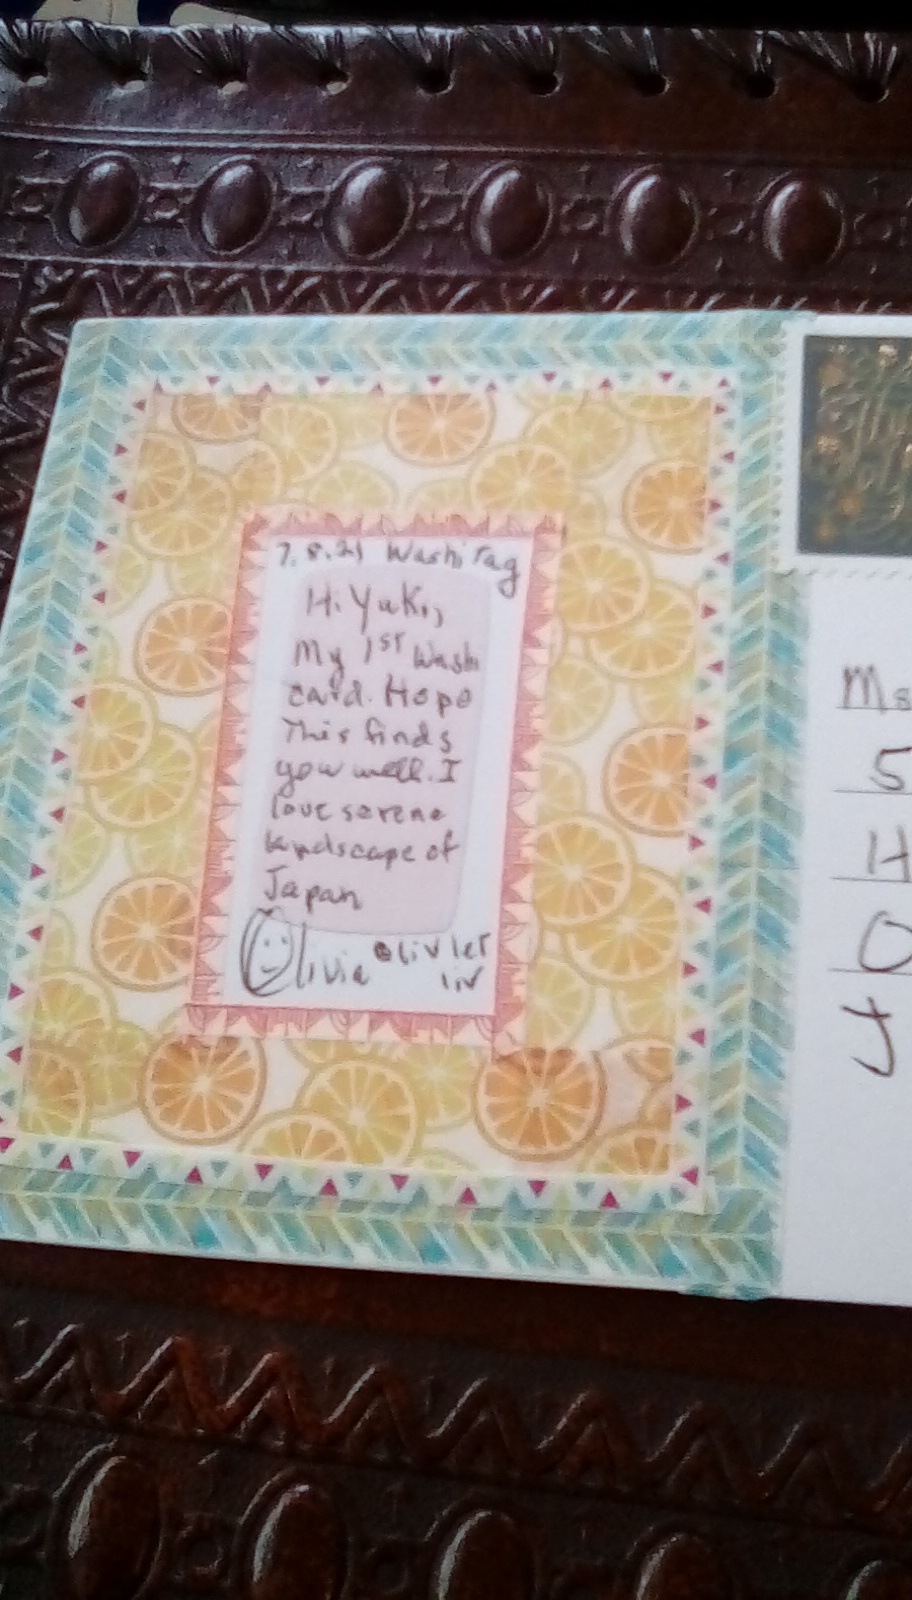 7.8.21 Washi Tag
Hi Yuki,
My 1ST Washi
card. Hope
This finds
you well. I
love serene
landscape of
Japan
Olivia olivlet
liv
Ms
5
H
O
J